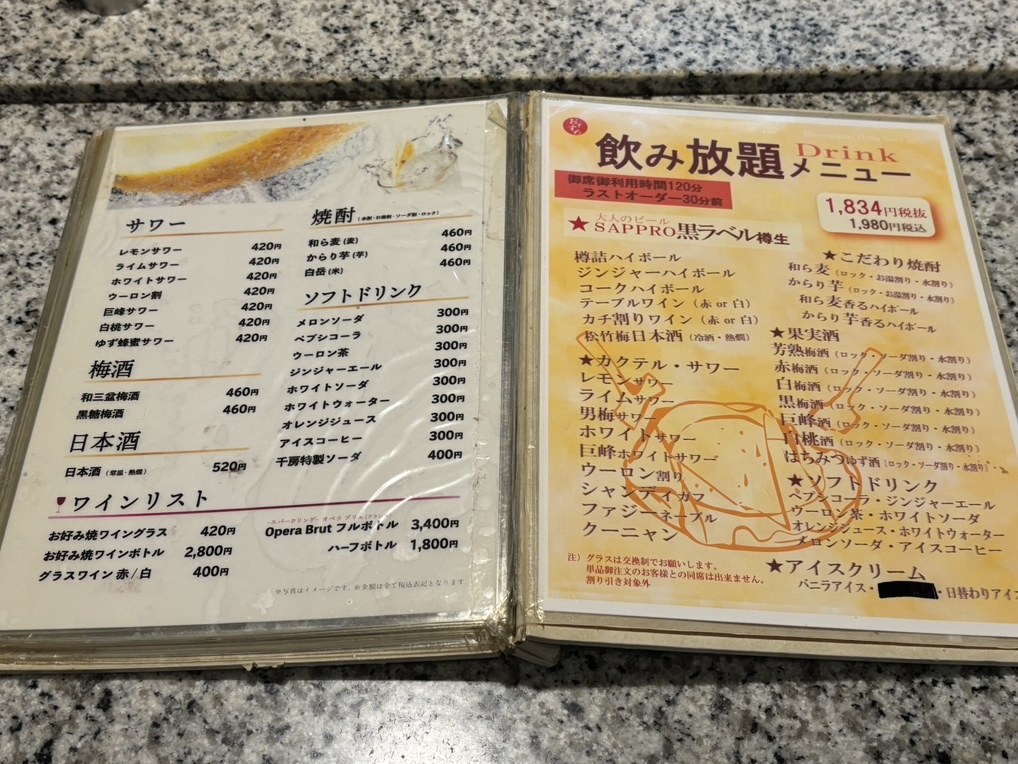 サワー
レモンサワー 420円
ライムサワー 420円
ホワイトサワー 420円
ウーロン割 420円
巨峰サワー 420円
白桃サワー 420円
ゆず蜂蜜サワー 420円
梅酒
和三盆梅酒 460円
黒糖梅酒 460円
日本酒
日本酒(常温・熱燗) 520円
焼酎(水割・お湯割・ソーダ割・ロック)
和ら麦(麦) 460円
からり芋(芋) 460円
白岳(米) 460円
ソフトドリンク
メロンソーダ 300円
ペプシコーラ 300円
ウーロン茶 300円
ジンジャーエール 300円
ホワイトソーダ 300円
ホワイトウォーター 300円
オレンジジュース 300円
アイスコーヒー 300円
千房特製ソーダ 400円
ワインリスト
お好み焼ワイングラス 420円
お好み焼ワインボトル 2,800円
グラスワイン 赤/白 400円
Opera Brut フルボトル 3,400円
ハーフボトル 1,800円
※写真はイメージです。※金額は全て税込表記となります
飲み放題 Drink メニュー
御席御利用時間120分
ラストオーダー30分前
1,834円税抜
1,980円税込
大人のビール
★SAPPRO黒ラベル樽生
樽詰ハイボール
ジンジャーハイボール
コークハイボール
テーブルワイン(赤 or 白)
カチ割りワイン(赤 or 白)
松竹梅日本酒(冷酒・熱燗)
★カクテル・サワー
レモンサワー
ライムサワー
男梅サワー
ホワイトサワー
巨峰ホワイトサワー
ウーロン割り
シャンディガフ
ファジーネーブル
クーニャン
注)グラスは交換制でお願いします。
単品御注文のお客様との同席は出来ません。
割り引き対象外
★こだわり焼酎
和ら麦(ロック・お湯割り・水割り)
からり芋(ロック・お湯割り・水割り)
和ら麦香るハイボール
からり芋香るハイボール
★果実酒
芳熟梅酒(ロック・ソーダ割り・水割り)
赤梅酒(ロック・ソーダ割り・水割り)
白梅酒(ロック・ソーダ割り・水割り)
黒梅酒(ロック・ソーダ割り・水割り)
巨峰酒(ロック・ソーダ割り・水割り)
白桃酒(ロック・ソーダ割り・水割り)
はちみつゆず酒(ロック・ソーダ割り・水割り)
★ソフトドリンク
ペプシコーラ・ジンジャーエール
ウーロン茶・ホワイトソーダ
オレンジジュース・ホワイトウォーター
メロンソーダ・アイスコーヒー
★アイスクリーム
バニラアイス・ ・日替わりアイス